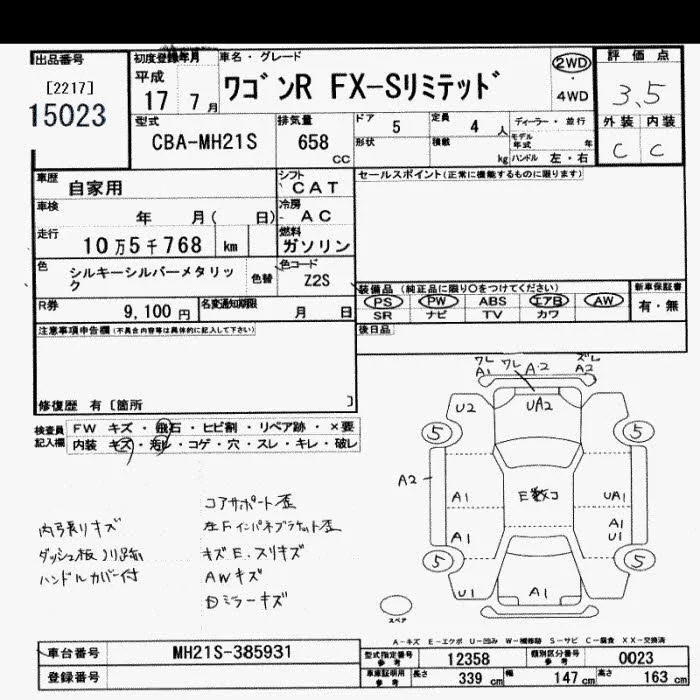 出品番号
[2217]
15023
初度登録年月
平成
17 7月
車名・グレード
ワゴンR FX-Sリミテッド
2WD
・
4WD
評価点
3.5
外装 内装
C C
型式
CBA-MH21S
排気量
658 CC
ドア 5
定員 4 人
ディーラー・並行
形状
積載 kg
モデル年式 年
ハンドル 左・右
車歴 自家用
シフト CAT
セールスポイント(正常に機能するものに限ります)
車検 年 月( 日)
冷房 AC
走行 10万5千768 km
燃料 ガソリン
色 シルキーシルバーメタリック
色替
色コード Z2S
装備品 (純正品に限り○をつけてください)
新車保証書
PS PW ABS エアB AW
有・無
SR ナビ TV カワ
R券 9,100 円
名変通知期限 月 日
後日品
注意事項申告欄(不具合内容等は具体的に記入して下さい)
修復歴 有〔箇所 〕
検査員記入欄
FW キズ・飛石・ヒビ割・リペア跡・×要
内装 キズ・汚レ・コゲ・穴・スレ・キレ・破レ
ワレ ワレ A2 ズレ
A1 A2
U2 UA2
5 5
A2
A1 E数コ UA1
A1 A1
U1
5 5
U1 A1
スペア
コアサポート歪
内張りキズ
左Fインパネブラケット歪
ダッシュ板ノリ跡
キズE.スリキズ
ハンドルカバー付
AWキズ
Dミラーキズ
A-キズ E-エクボ U-凹み W-補修跡 S-サビ C-腐食 XX-交換済
車台番号 MH21S-385931
登録番号
型式指定番号 参考 12358
類別区分番号 参考 0023
車庫証明用 参考 長さ 339 cm 幅 147 cm 高さ 163 cm